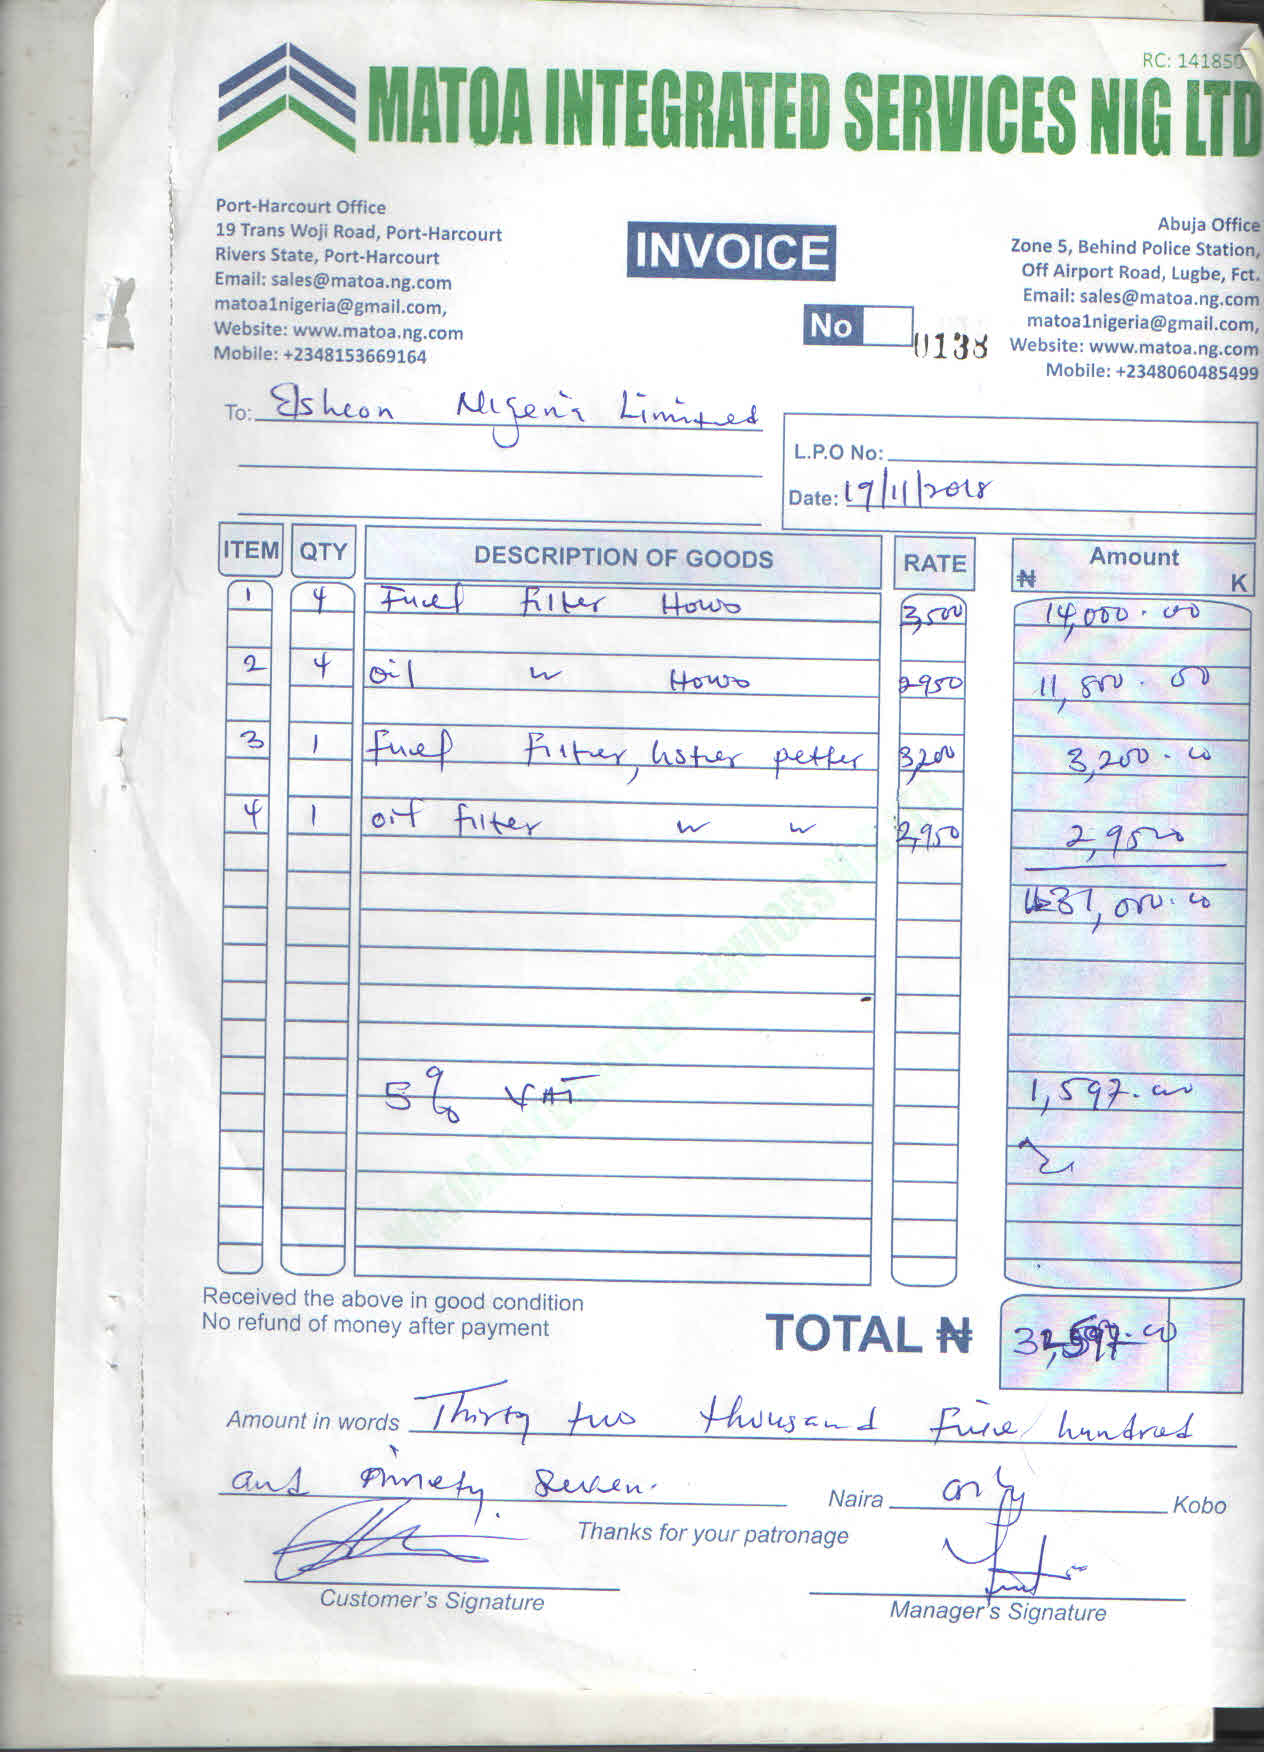 RC: 14185
MATOA INTEGRATED SERVICES NIG LTD
Port-Harcourt Office
19 Trans Woji Road, Port-Harcourt
Rivers State, Port-Harcourt
Email: sales@matoa.ng.com
matoa1nigeria@gmail.com,
Website: www.matoa.ng.com
Mobile: +2348153669164
INVOICE
No 0138
Abuja Office
Zone 5, Behind Police Station,
Off Airport Road, Lugbe, Fct.
Email: sales@matoa.ng.com
matoa1nigeria@gmail.com,
Website: www.matoa.ng.com
Mobile: +2348060485499
To: Nigeria Limited
L.P.O No:
Date: 19/11/2018
ITEM QTY DESCRIPTION OF GOODS RATE Amount ₦ K
1 4 Fuel filter Howo 3,500 14,000.00
2 4 oil " Howo 2950 11,800.00
3 1 fuel filter, lister petter 3,200 3,200.00
4 1 oil filter " " 2,950 2,950
31,000.00
5% VAT 1,597.00
MATOA INTEGRATED SERVICES NIG LTD
Received the above in good condition
No refund of money after payment
TOTAL ₦ 32,597.00
Amount in words Thirty two thousand five hundred
and ninety seven. Naira only Kobo
Thanks for your patronage
Customer's Signature
Manager's Signature